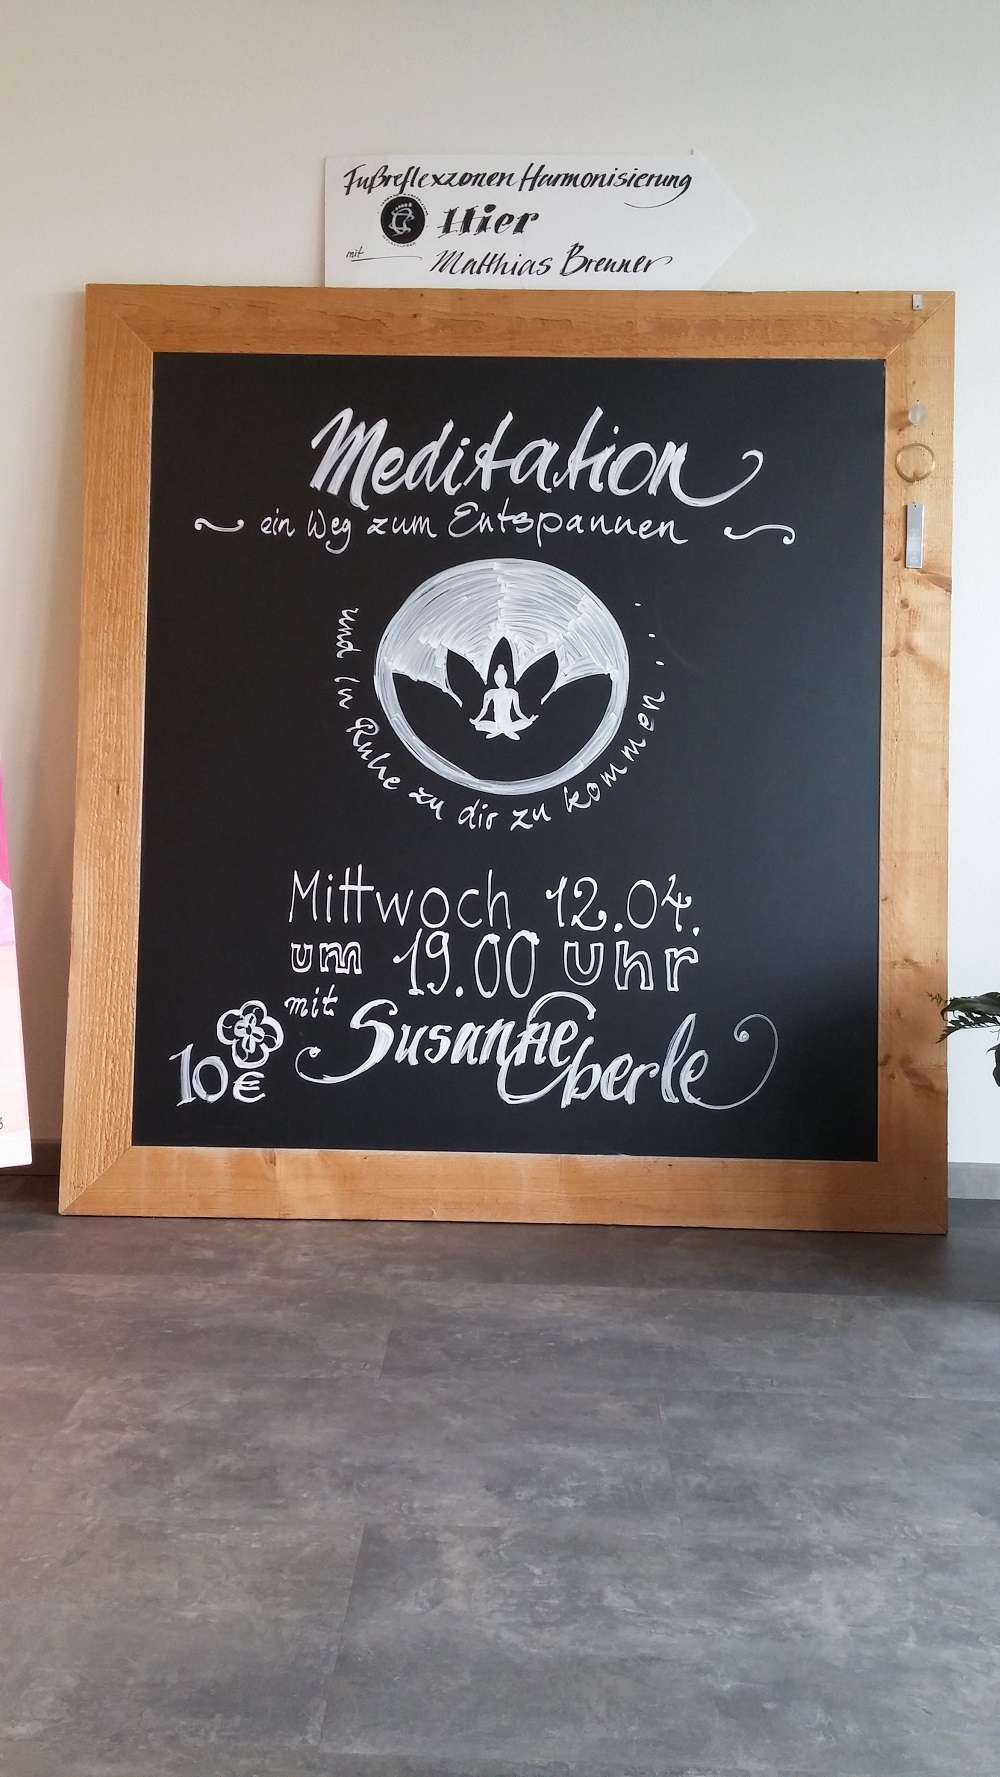 Fußreflexzonen Harmonisierung
Hier
mit Matthias Brenner
Meditation
ein Weg zum Entspannen
und in Ruhe zu dir zu kommen ...
Mittwoch 12.04.
um 19.00 Uhr
mit Susanne Eberle
10€